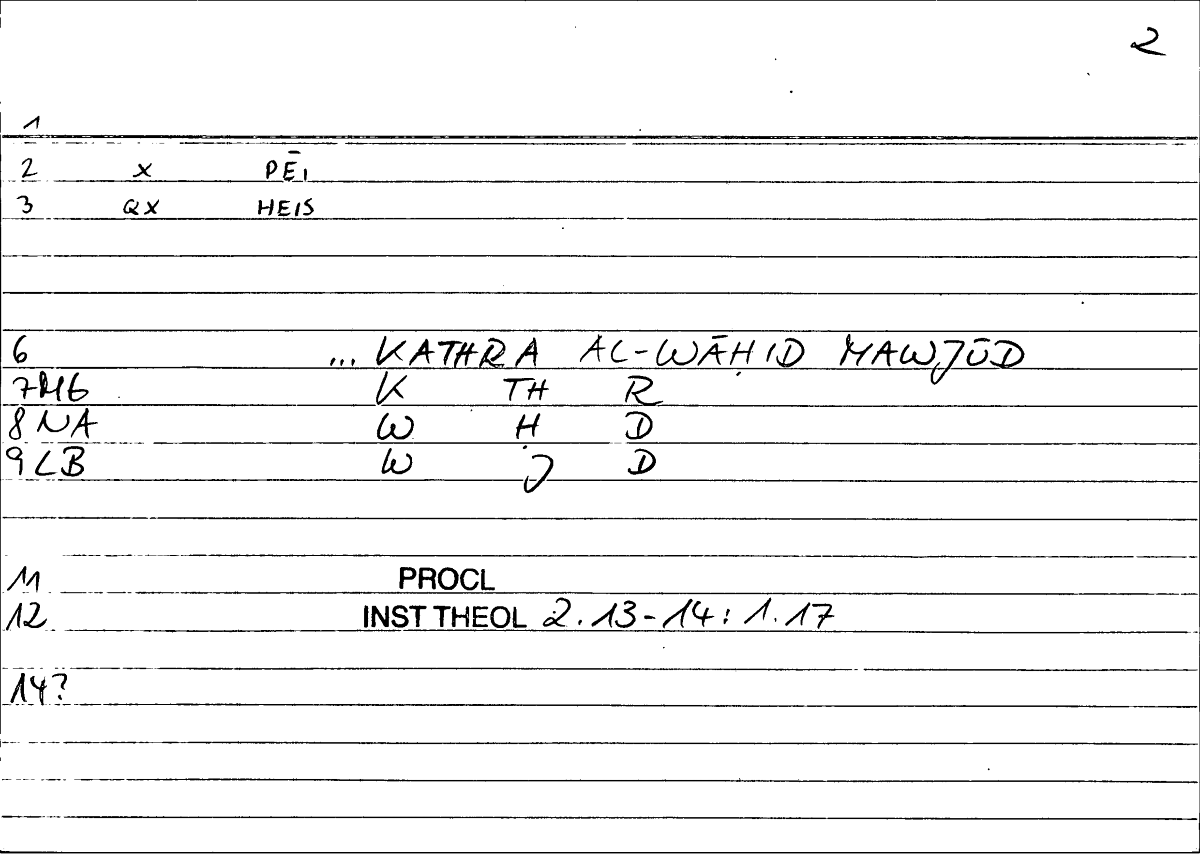 2
1
2 X PĒI
3 QX HEIS
6 ... KATHRA AL-WĀḤID MAWJŪD
7MB K TH R
8 NA W Ḥ D
9 LB W J D
11 PROCL
12 INST THEOL 2.13-14: 1.17
14?